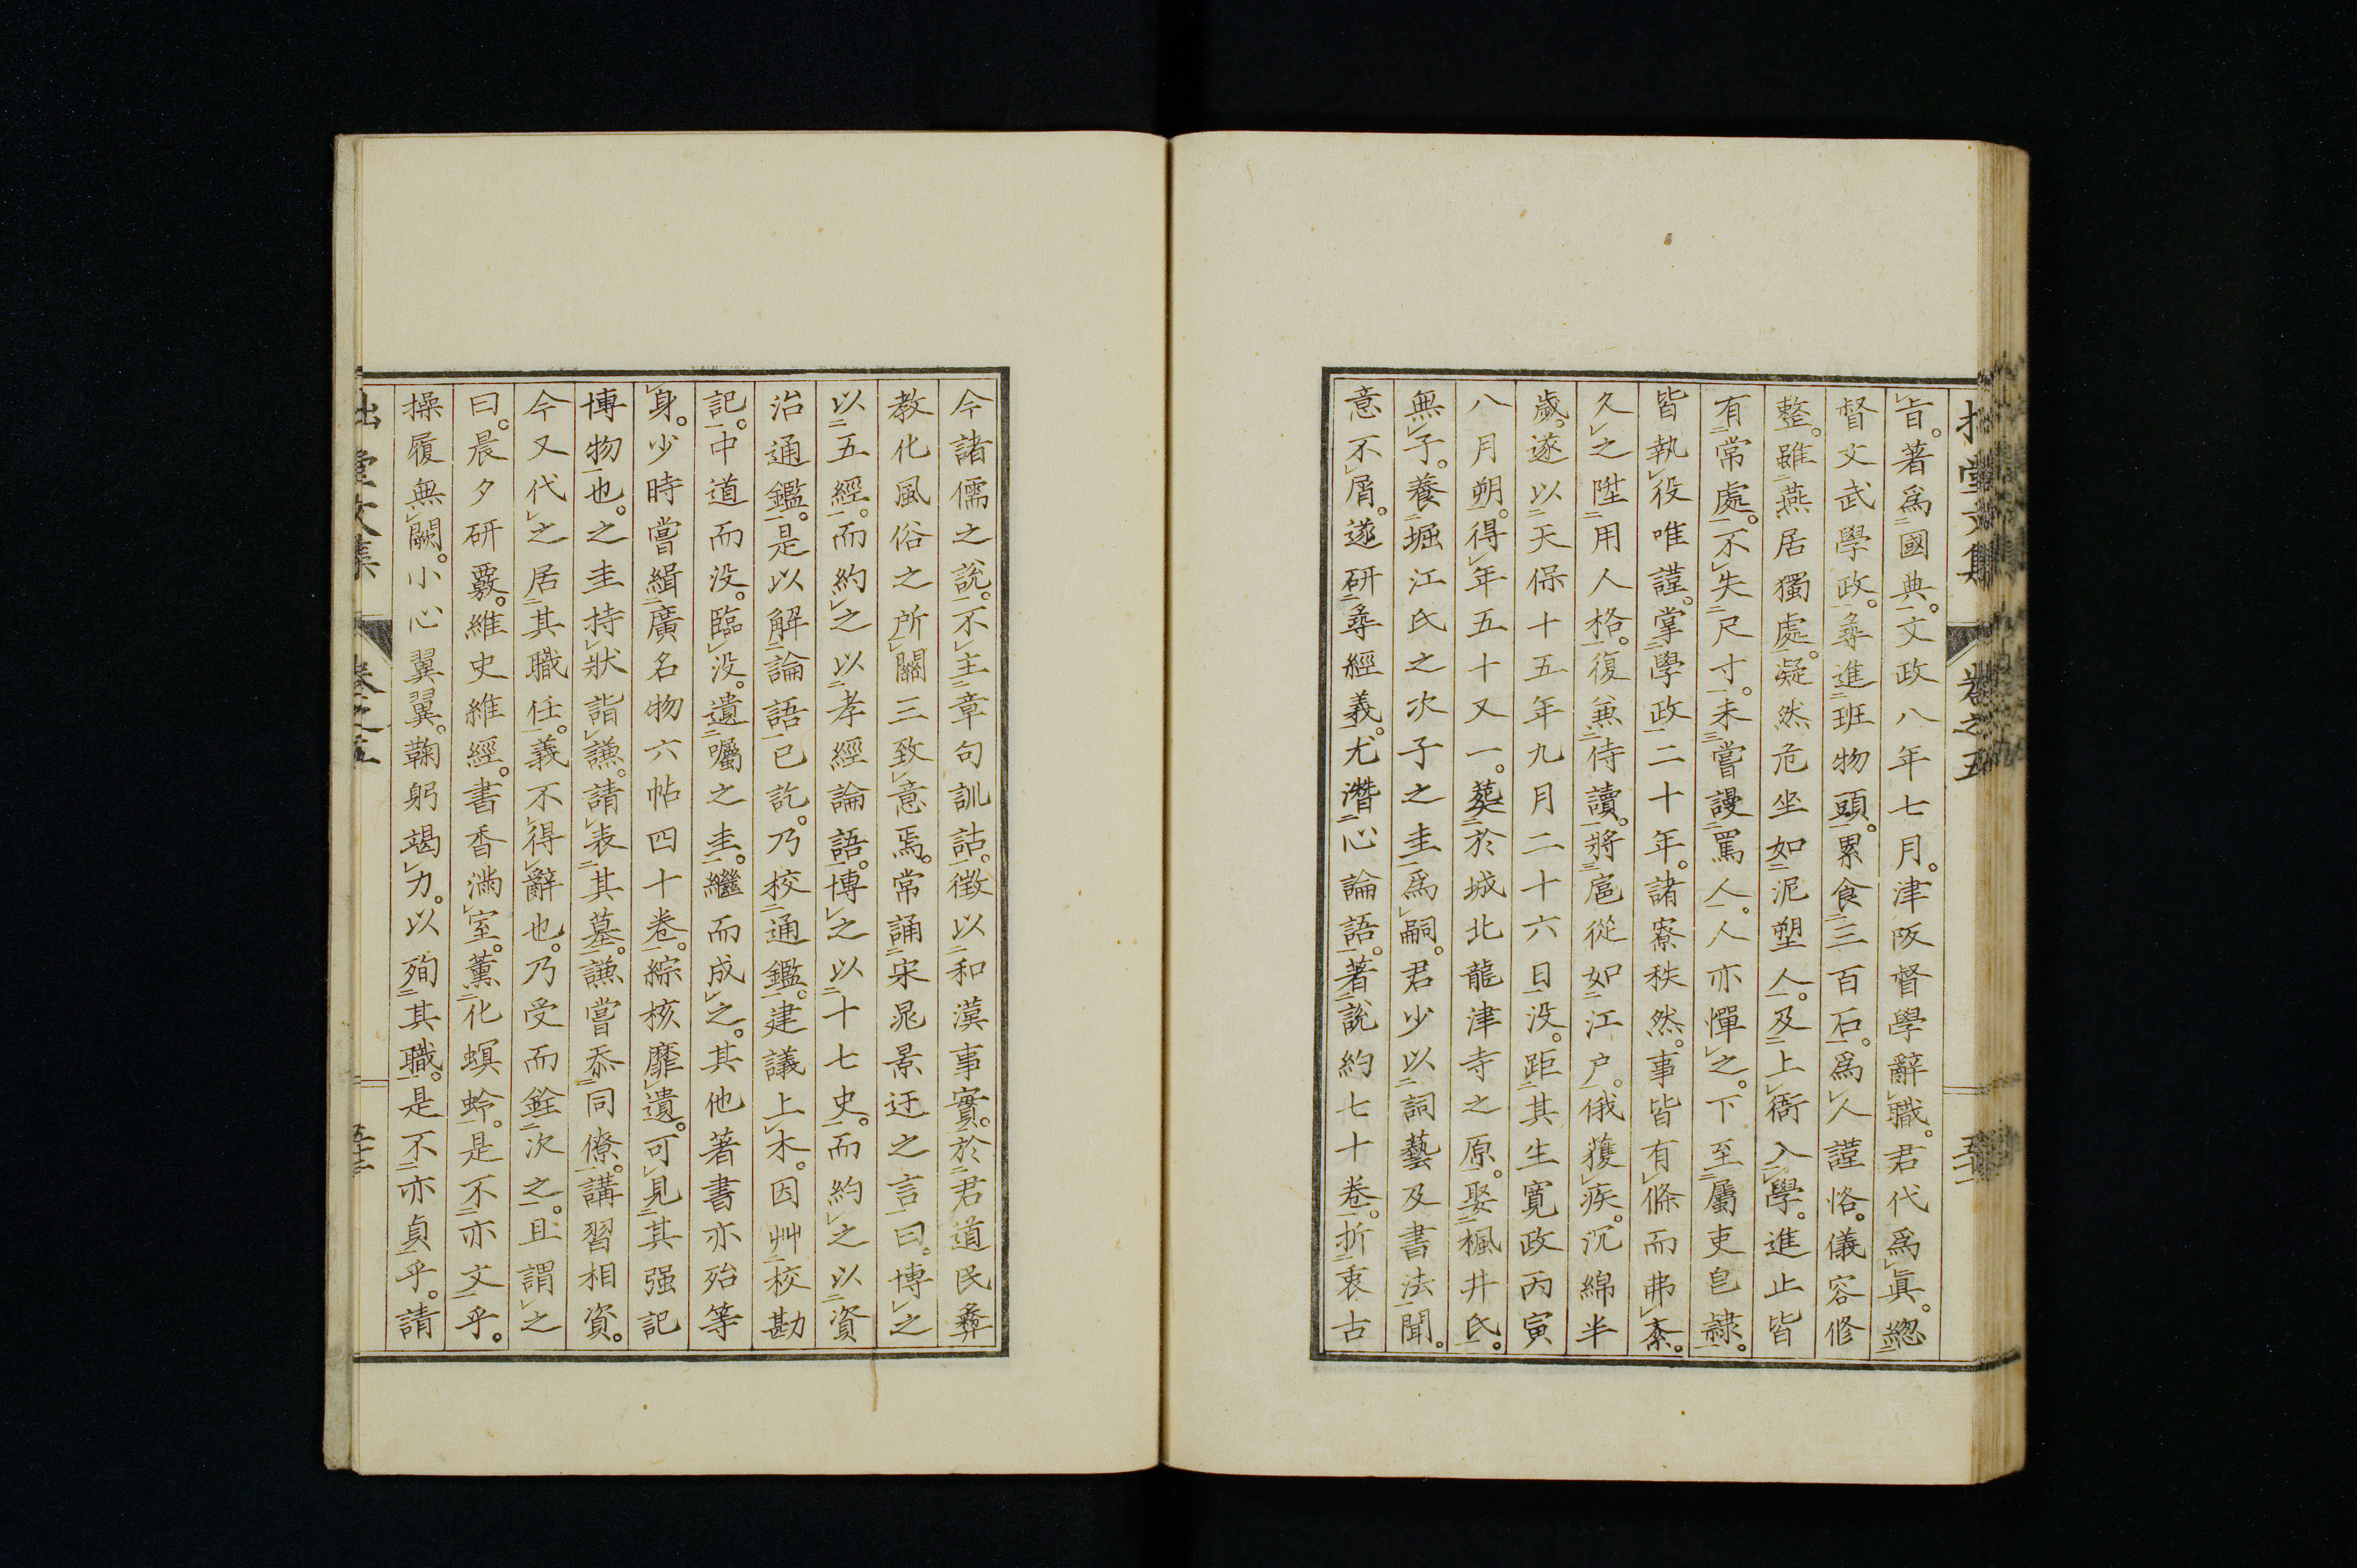 堂文集 卷之五
旨。著爲國典。文政八年七月。津阪督學辭職。君代爲眞。總
督文武學政。尋進班物頭。累食三百石。爲人謹恪。儀容修
整。雖燕居獨處。凝然危坐如泥塑人。及上衙入學。進止皆
有常處。不失尺寸。未嘗謾罵人。人亦憚之。下至屬吏皂隷。
皆執役唯謹。掌學政二十年。諸寮秩然。事皆有條而弗紊。
久之陞用人格。復兼侍讀。將扈從如江戸。俄獲疾。沉綿半
歲。遂以天保十五年九月二十六日没。距其生寛政丙寅
八月朔。得年五十又一。葬於城北龍津寺之原。娶楓井氏。
無子。養堀江氏之次子之圭爲嗣。君少以詞藝及書法聞。
意不屑。遂研尋經義。尤潛心論語。著說約七十卷。折衷古
今諸儒之說。不主章句訓詁。徴以和漢事實。於君道民彝
教化風俗之所關三致意焉。常誦宋晁景迂之言曰。博之
以五經。而約之以孝經論語。博之以十七史。而約之以資
治通鑑。是以解論語已訖。乃校通鑑。建議上木。因艸校勘
記。中道而没。臨没。遺囑之圭。繼而成之。其他著書亦殆等
身。少時嘗緝廣名物六帖四十卷。綜核靡遺。可見其强記
博物也。之圭持狀詣謙。請表其墓。謙嘗忝同僚。講習相資。
今又代之居其職任。義不得辭也。乃受而銓次之。且謂之
曰。晨夕研覈。維史維經。書香滿室。薫化螟蛉。是不亦文乎。
操履無闕。小心翼翼。鞠躬竭力。以殉其職。是不亦貞乎。請
堂文集 卷之五